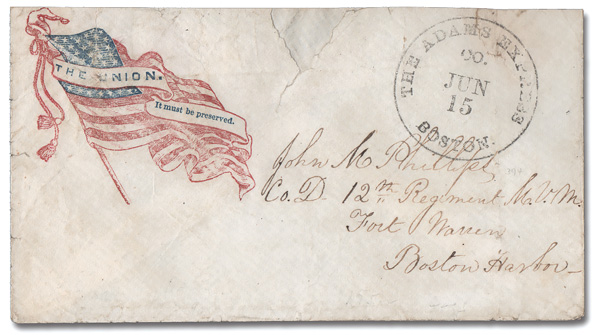 THE UNION.
It must be preserved.
THE ADAMS EXPRESS
CO.
JUN
15
BOSTON.
John M Phillips
Co. D. 12th Regiment M.V.M.
Fort Warren
Boston Harbor